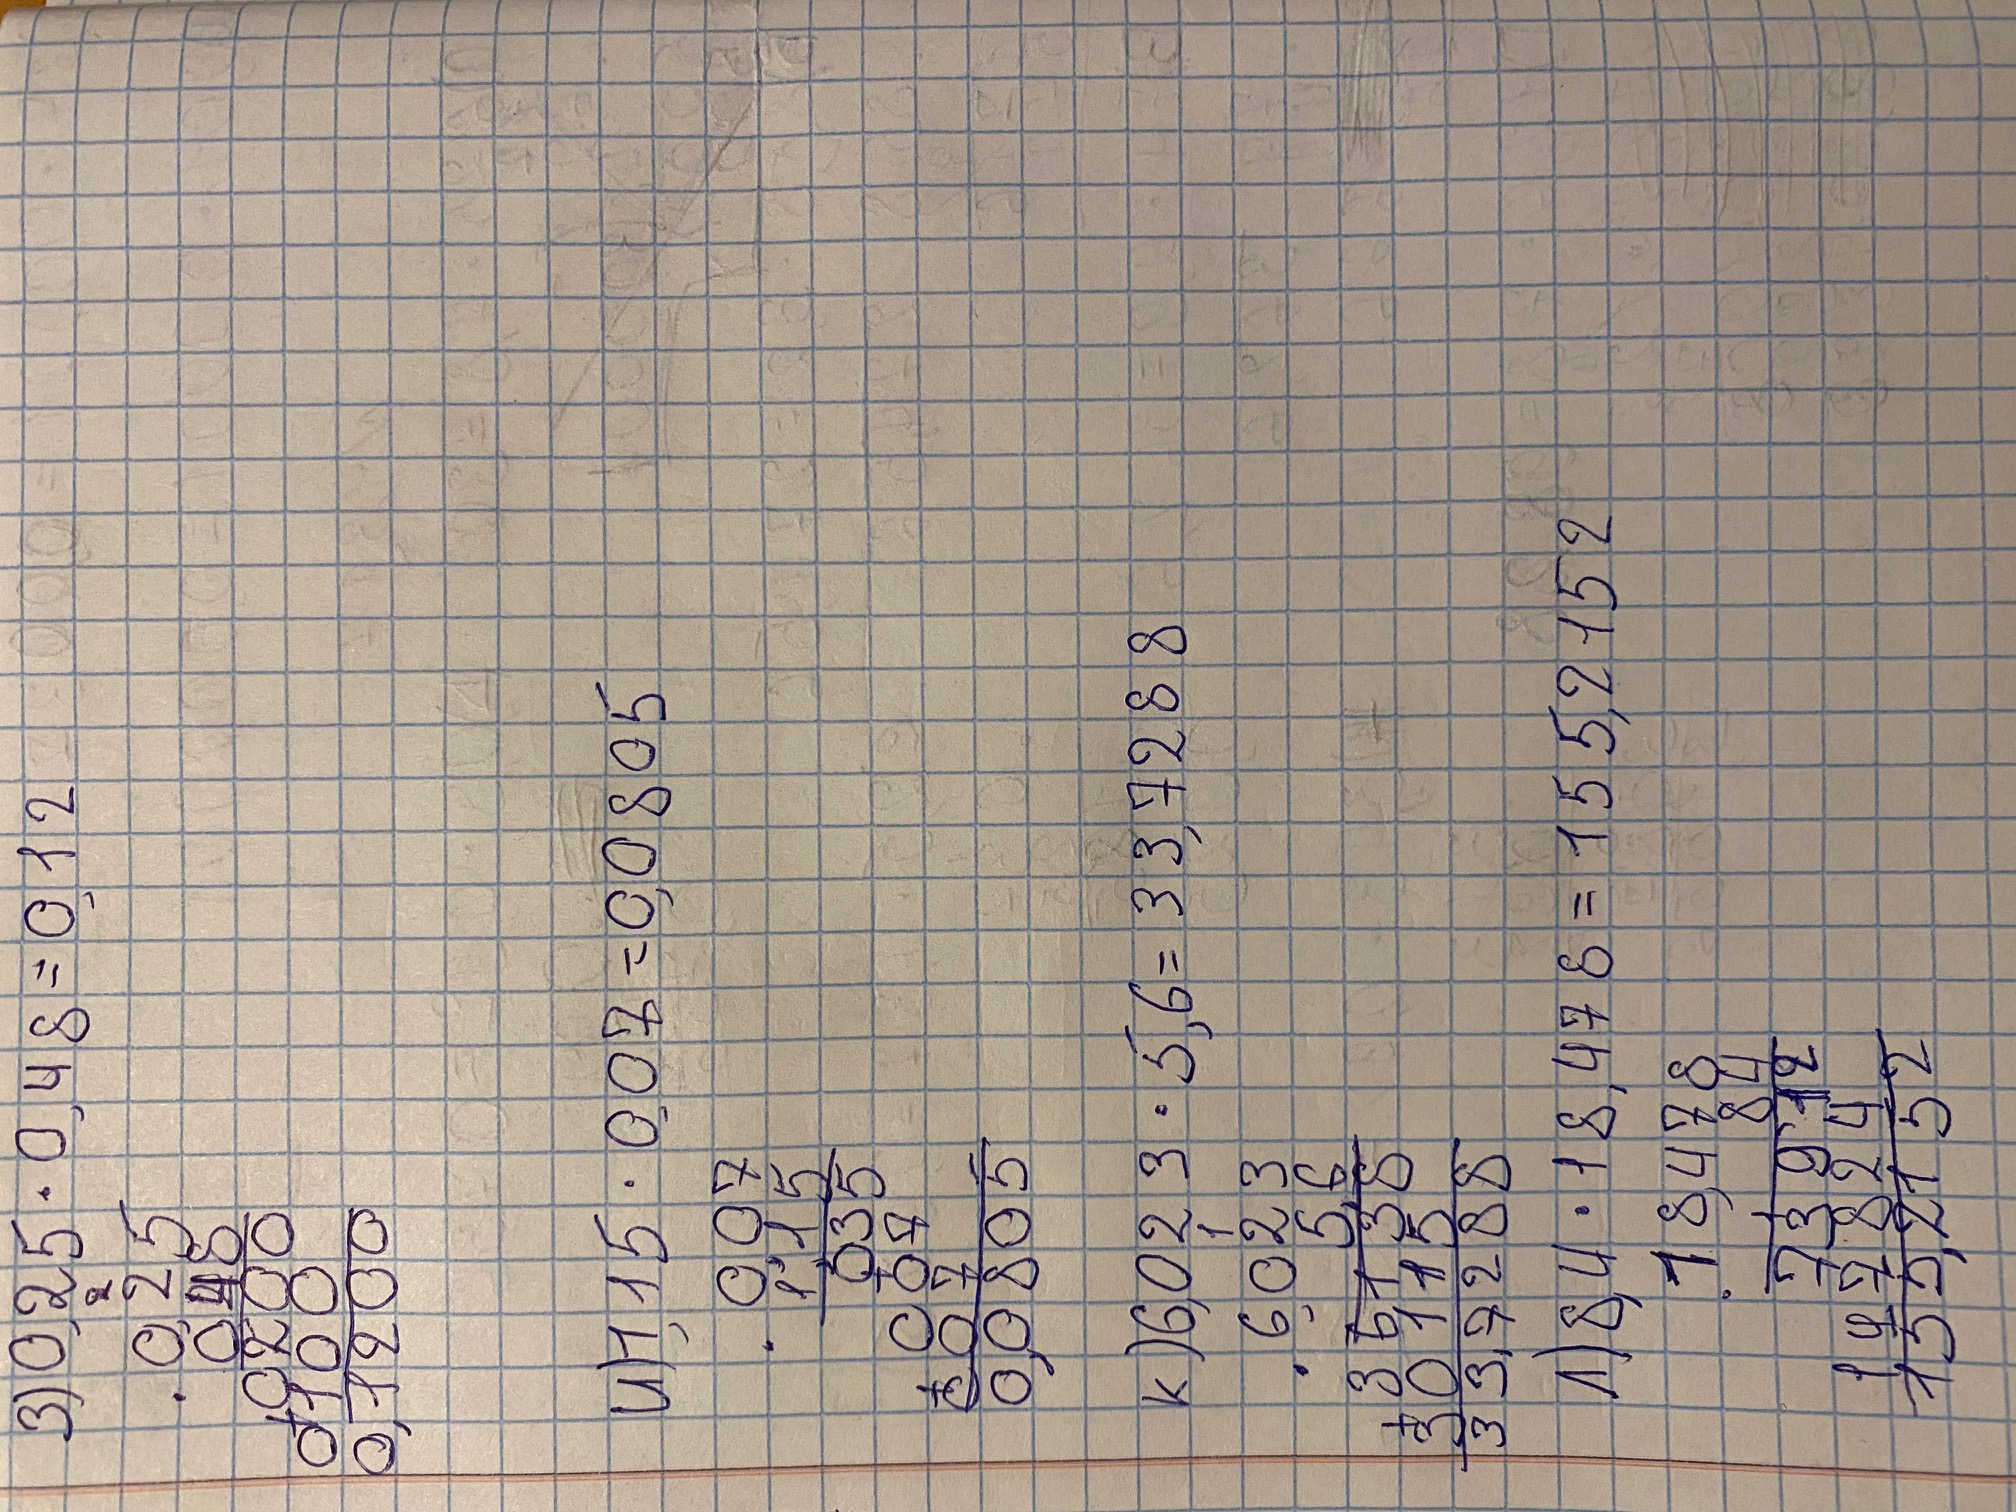 з) 0,25 · 0,48 = 0,12
2
· 0,25
0,48
0200
+
0100
0,1200
и) 1,15 · 0,007 = 0,00805
007
· 1,15
035
007
+
007
0,00805
к) 6,023 · 5,6 = 33,7288
1
6,023
· 5,6
36138
+
30115
33,7288
л) 8,4 · 18,478 = 155,2152
18,478
· 84
73912
+
147824
155,2152